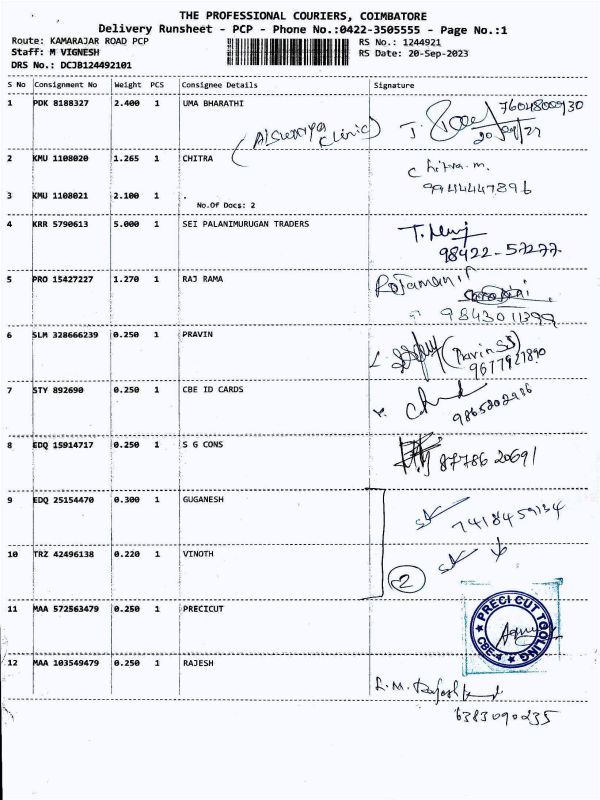 THE PROFESSIONAL COURIERS, COIMBATORE
Delivery Runsheet - PCP - Phone No.:0422-3505555 - Page No.:1
Route: KAMARAJAR ROAD PCP RS No.: 1244921
Staff: M VIGNESH RS Date: 20-Sep-2023
DRS No.: DCJB124492101
S No Consignment No Weight PCS Consignee Details Signature
1 PDK 8188327 2.400 1 UMA BHARATHI 7604800930
Clinic)
2 KMU 1108020 1.265 1 CHITRA Chitra.m.
9944447896
3 KMU 1108021 2.100 1 .
No.Of Docs: 2
4 KRR 5790613 5.000 1 SEI PALANIMURUGAN TRADERS
98422-57277
5 PRO 15427227 1.270 1 RAJ RAMA
9843011399
6 SLM 328666239 0.250 1 PRAVIN
9677927890
7 STY 892690 0.250 1 CBE ID CARDS
9865202986
8 EDQ 15914717 0.250 1 S G CONS 87786 20691
9 EDQ 25154470 0.300 1 GUGANESH
7418459134
10 TRZ 42496138 0.220 1 VINOTH
2
11 MAA 572563479 0.250 1 PRECICUT
PRECI CUT TOOLING
CBE-4
12 MAA 103549479 0.250 1 RAJESH
6383090235